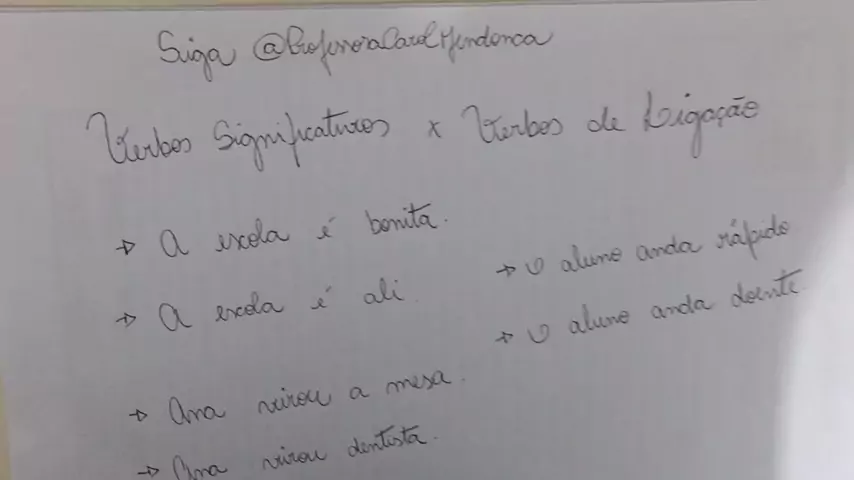 Siga @ProfessoraCarolMendonca
Verbos Significativos x Verbos de Ligação
→ A escola é bonita.
→ A escola é ali.
→ O aluno anda rápido
→ O aluno anda doente.
→ Ana virou a mesa.
→ Ana virou dentista.